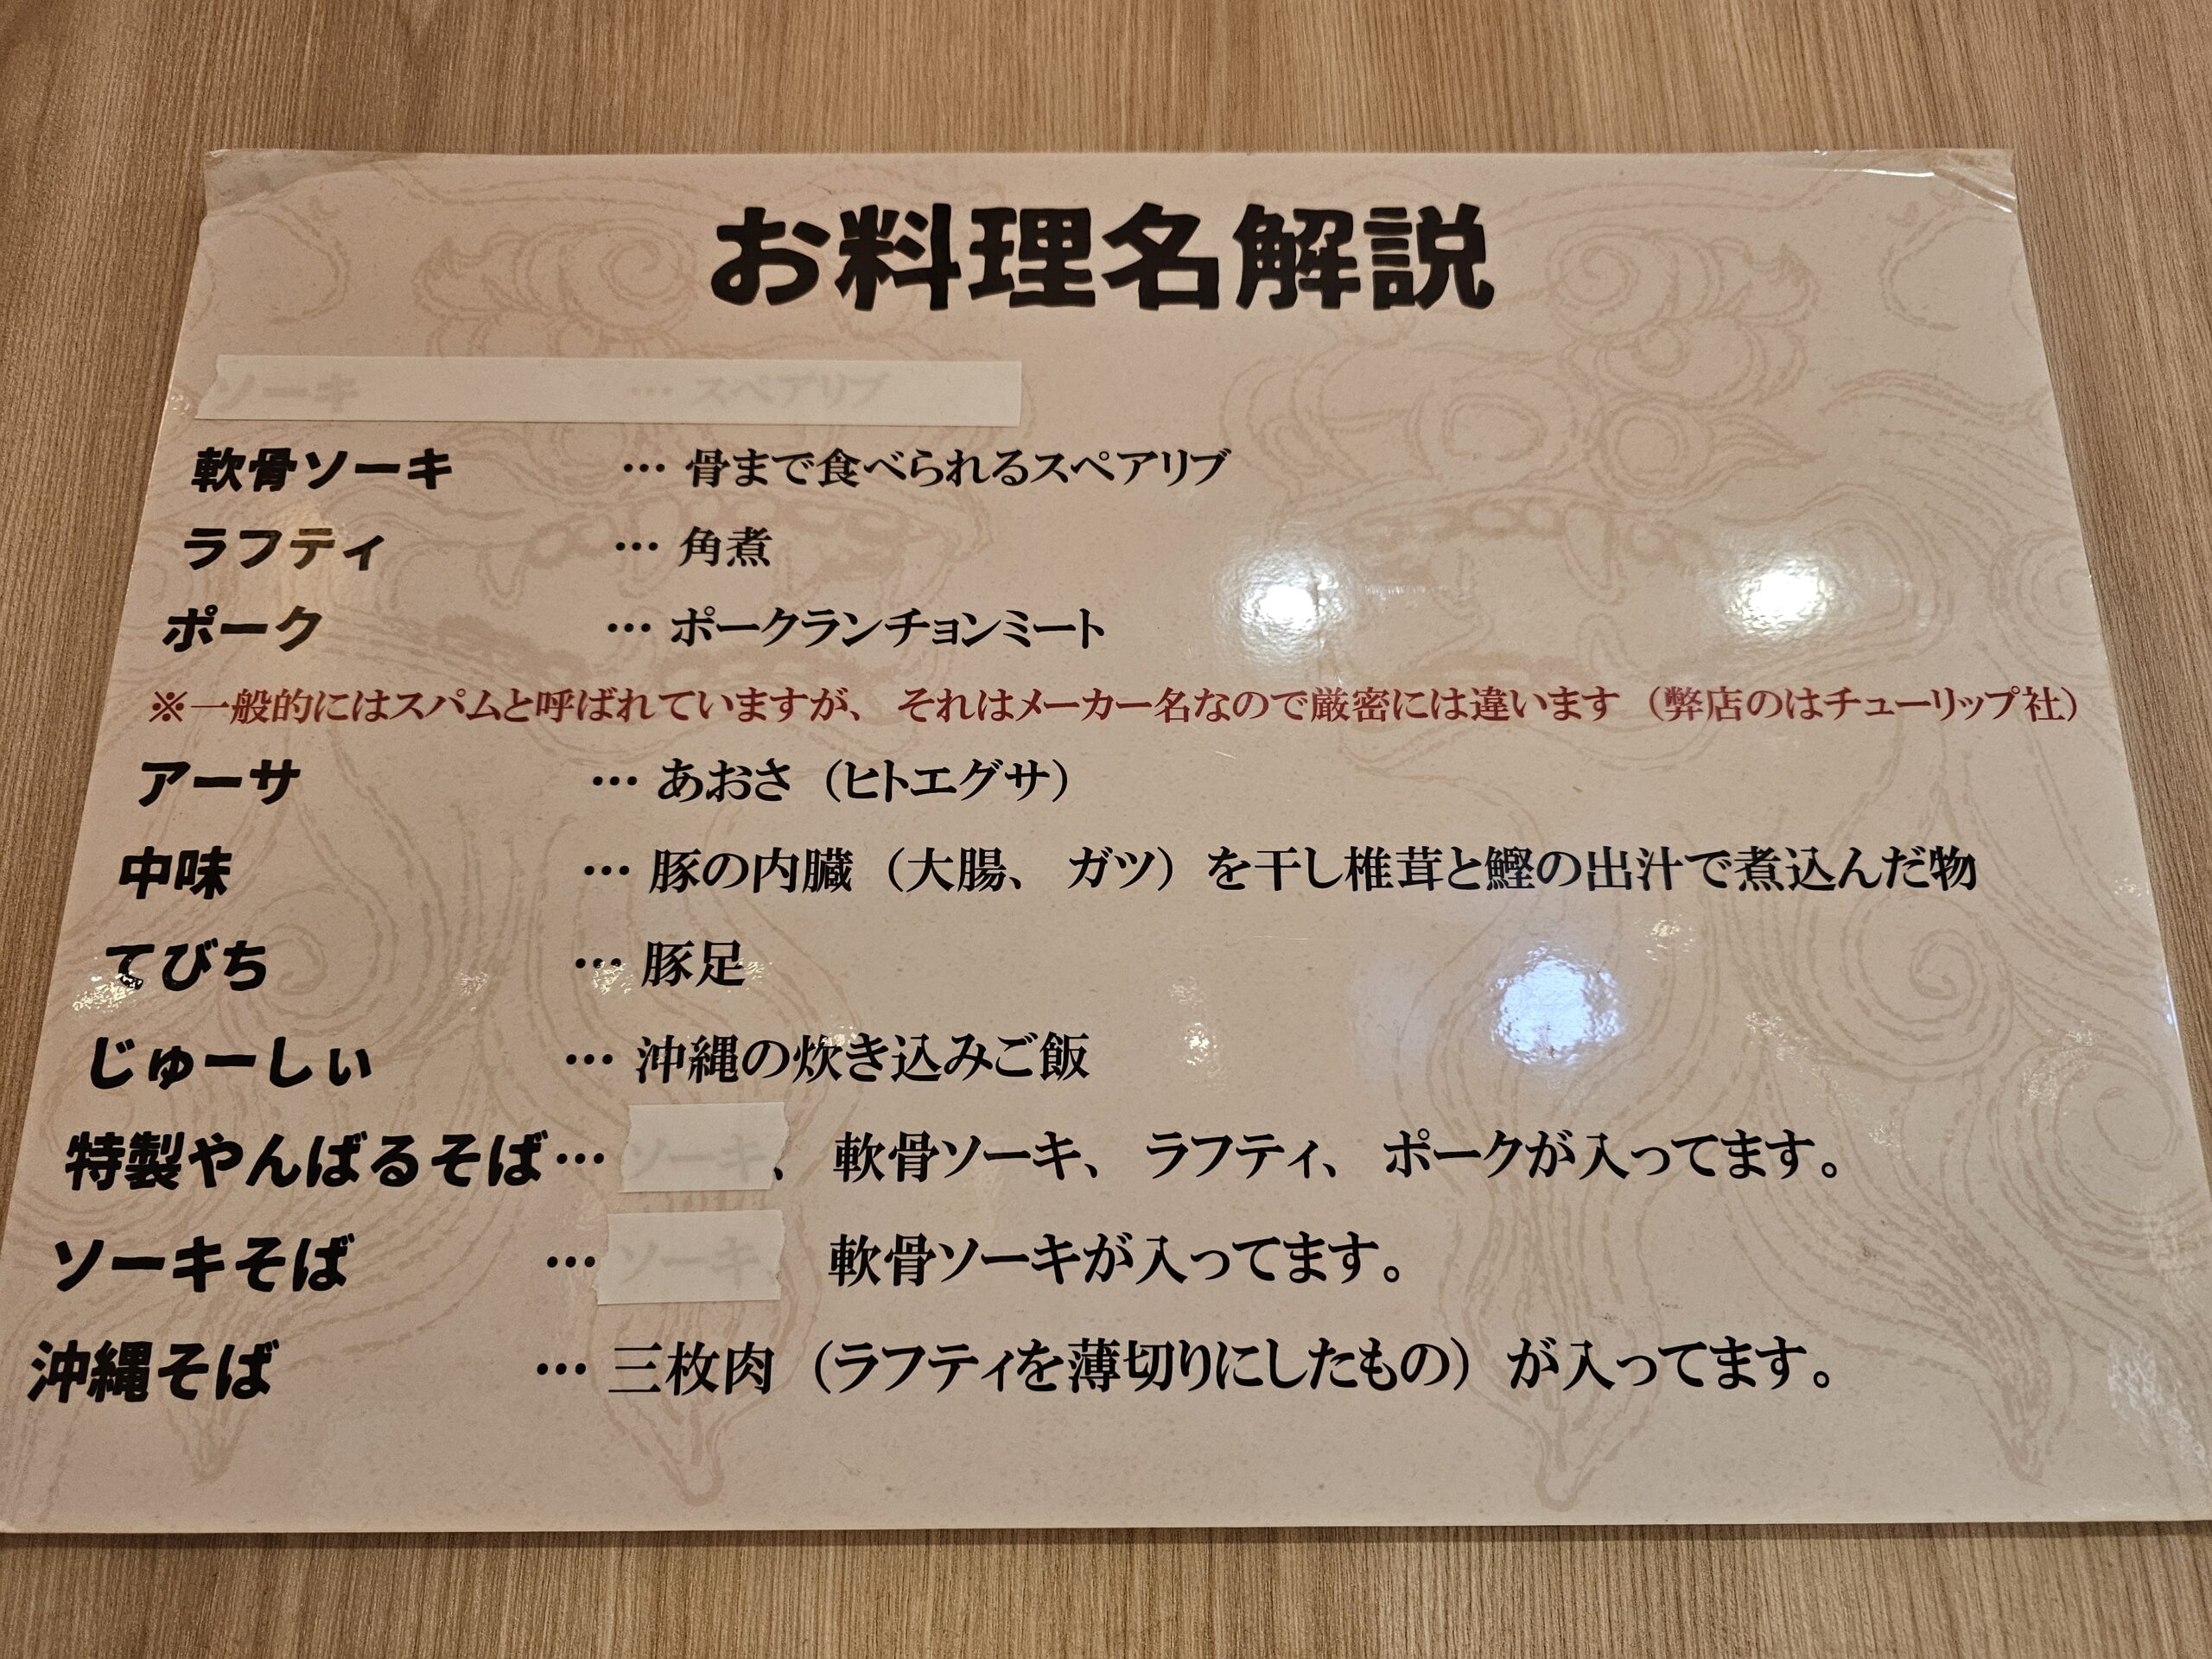 お料理名解説
ソーキ … スペアリブ
軟骨ソーキ … 骨まで食べられるスペアリブ
ラフティ … 角煮
ポーク … ポークランチョンミート
※一般的にはスパムと呼ばれていますが、それはメーカー名なので厳密には違います（弊店のはチューリップ社）
アーサ … あおさ（ヒトエグサ）
中味 … 豚の内臓（大腸、ガツ）を干し椎茸と鰹の出汁で煮込んだ物
てびち … 豚足
じゅーしぃ … 沖縄の炊き込みご飯
特製やんばるそば… ソーキ、軟骨ソーキ、ラフティ、ポークが入ってます。
ソーキそば … ソーキ 軟骨ソーキが入ってます。
沖縄そば … 三枚肉（ラフティを薄切りにしたもの）が入ってます。